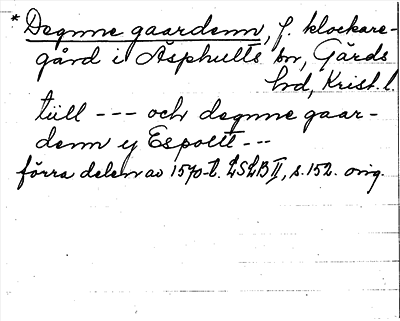 * Degnne gaardenn, f. klockare-
gård i Äsphults sn, Gärds
hd, Krist. l.
tiill --- och degnne gaar-
denn ij Espoltt ---
förra delen av 1570-t. LSLB II, s. 152. orig.